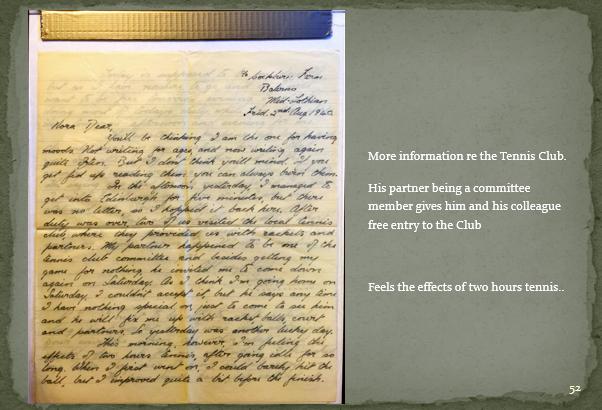 c/o Cockburn Farm
Balerno
Mid-Lothian
Frid. 2nd Aug 194
Nora Dear,
You'll be thinking I am the one for having
moods. Not writing for ages and now writing again
quite often. But I don't think you'll mind. If you
get fed up reading them you can always burn them.
In the afternoon, yesterday, I managed to
get into Edinburgh for five minutes, but there
was no letter, so I hopped it back here. After
duty was over, two of us visited the local tennis
club, where they provided us with rackets and
partners. My partner happened to be one of the
tennis club committee and besides getting my
game for nothing he invited me to come down
again on Saturday. As I think I'm going home on
Saturday, I couldn't accept it, but he says any time
I have nothing special on, just to come to see him
and he will fix me up with racket balls, court
and partners. So yesterday was another lucky day.
This morning, however, I'm feeling the
effects of two hours tennis, after going idle for so
long. When I first went on, I could barely hit the
ball, but I improved quite a bit before the finish.
More information re the Tennis Club.
His partner being a committee
member gives him and his colleague
free entry to the Club
Feels the effects of two hours tennis..
52